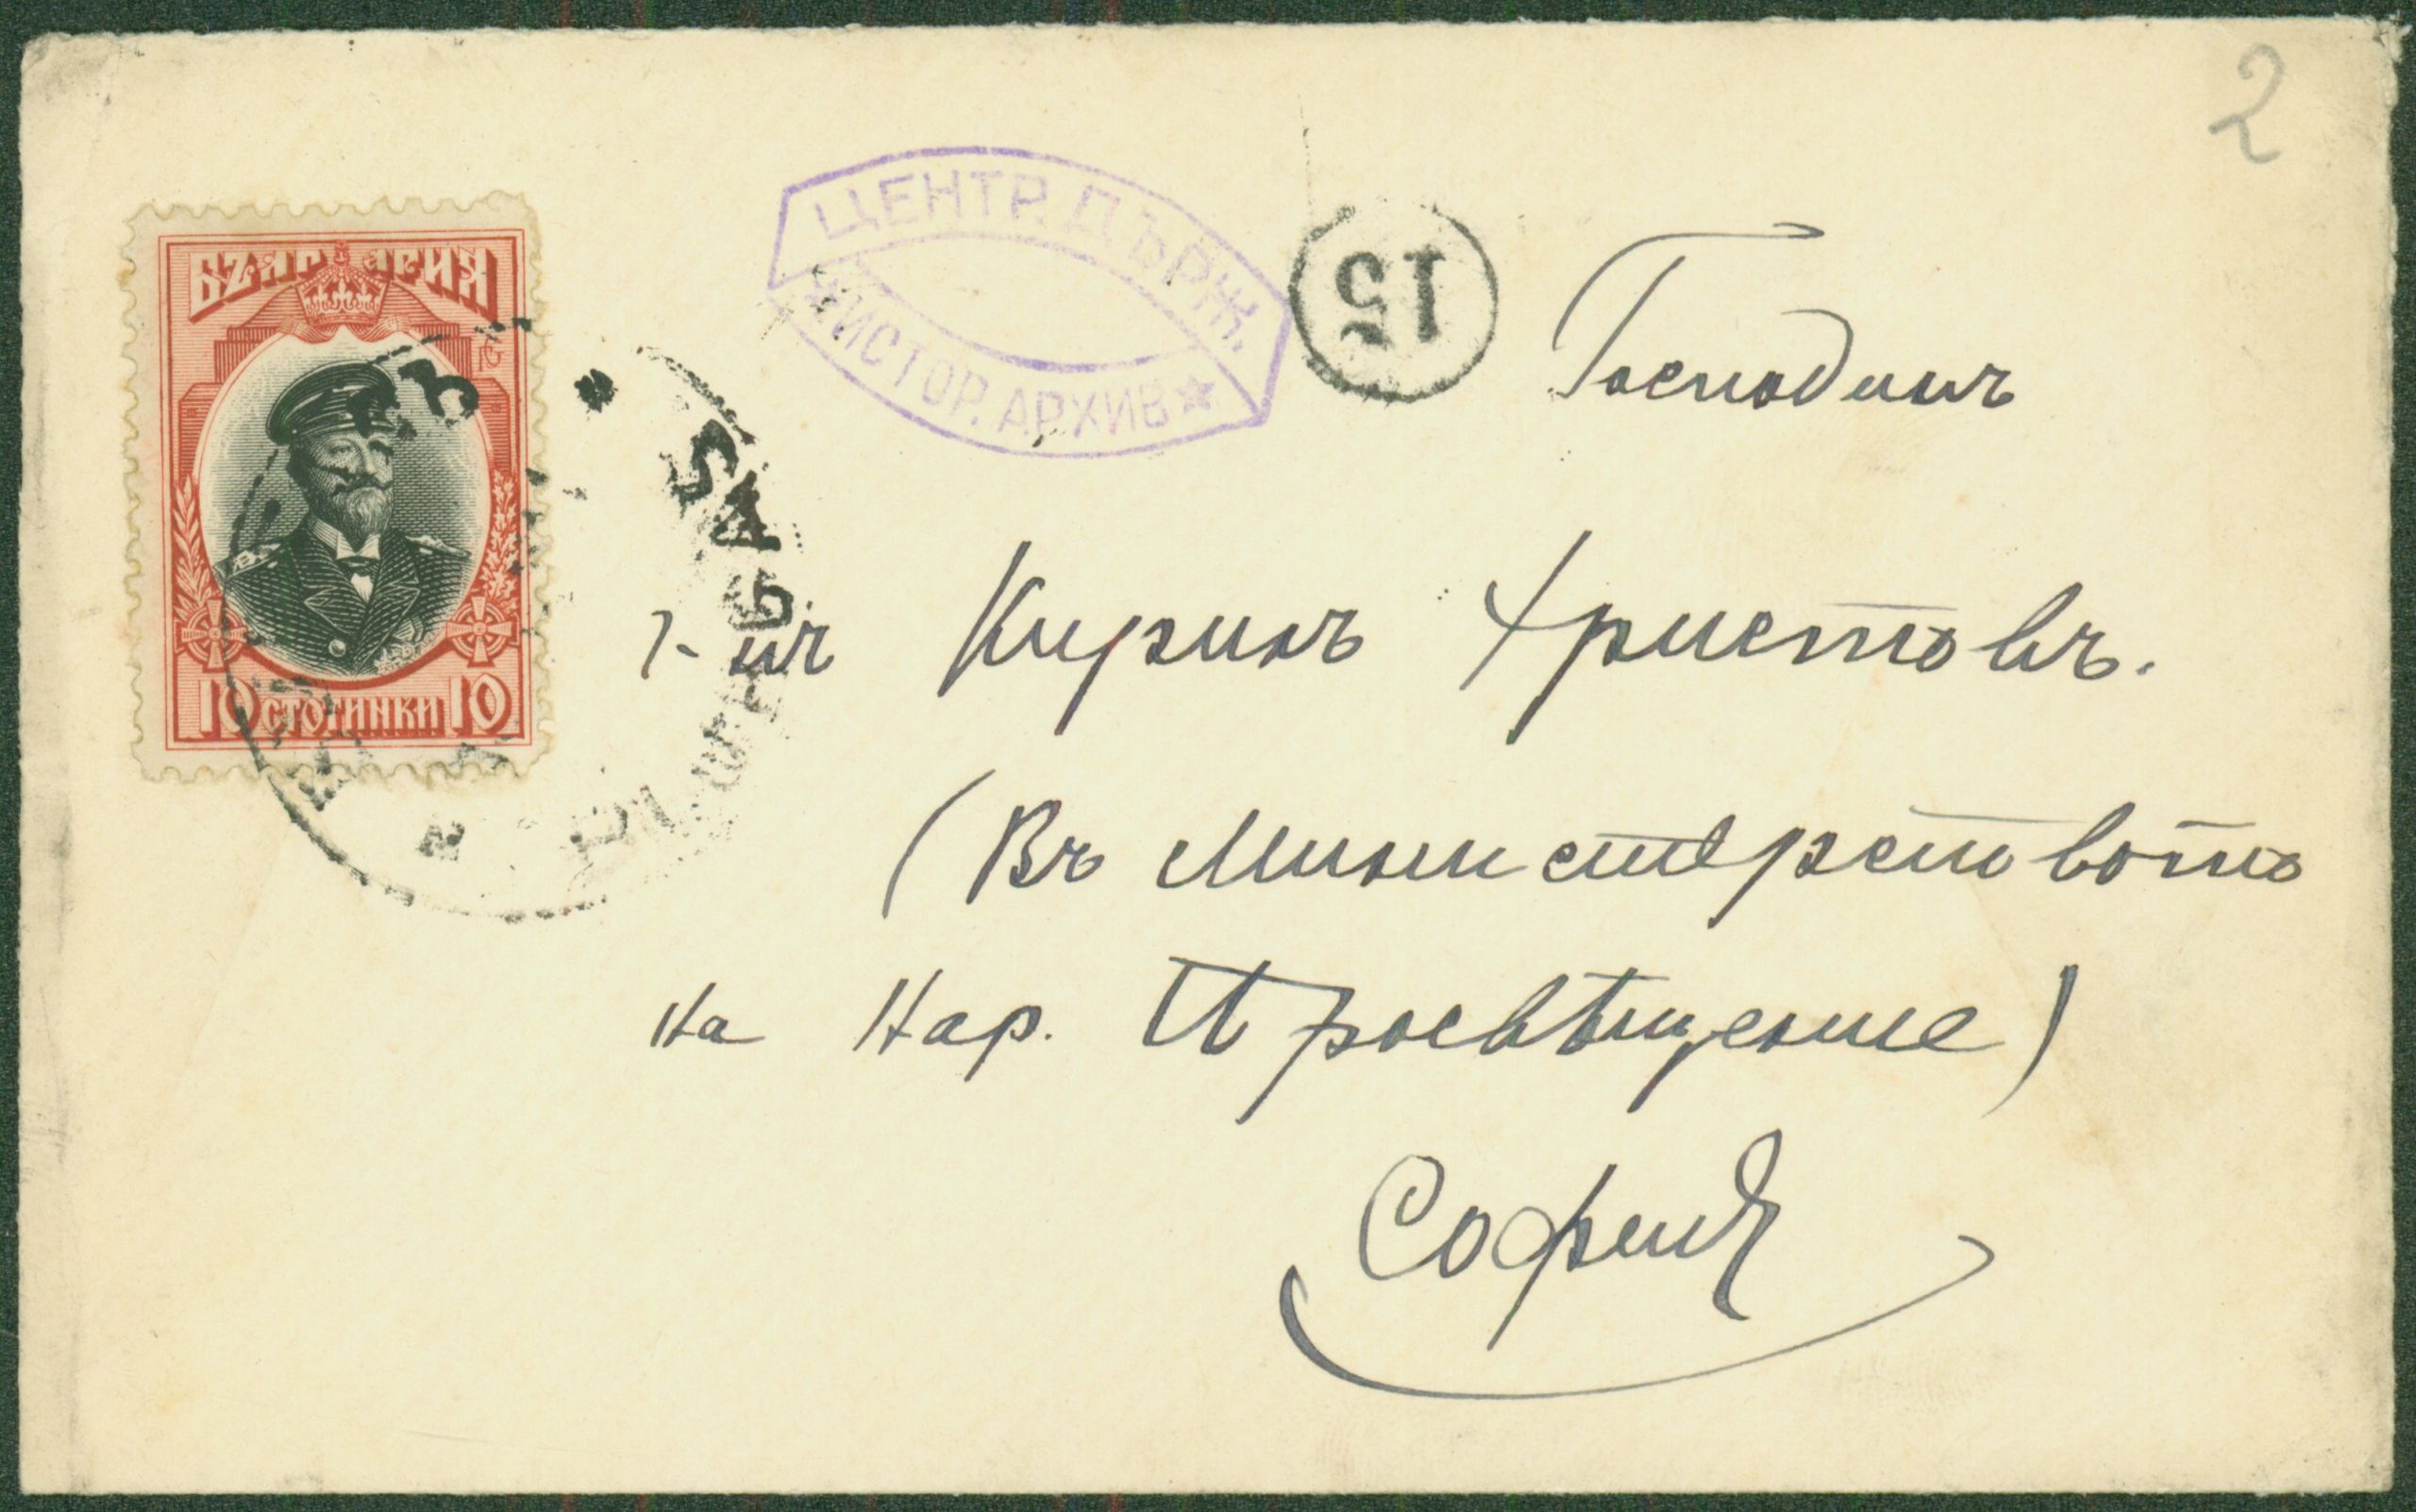 2
БЪЛГАРИЯ
10 СТОТИНКИ 10
ЦЕНТР. ДЪРЖ.
ИСТОР. АРХИВ
15
Господинъ
Г-нъ Кирилъ Христовъ.
(Въ Министерството
на Нар. Просвѣщение)
София